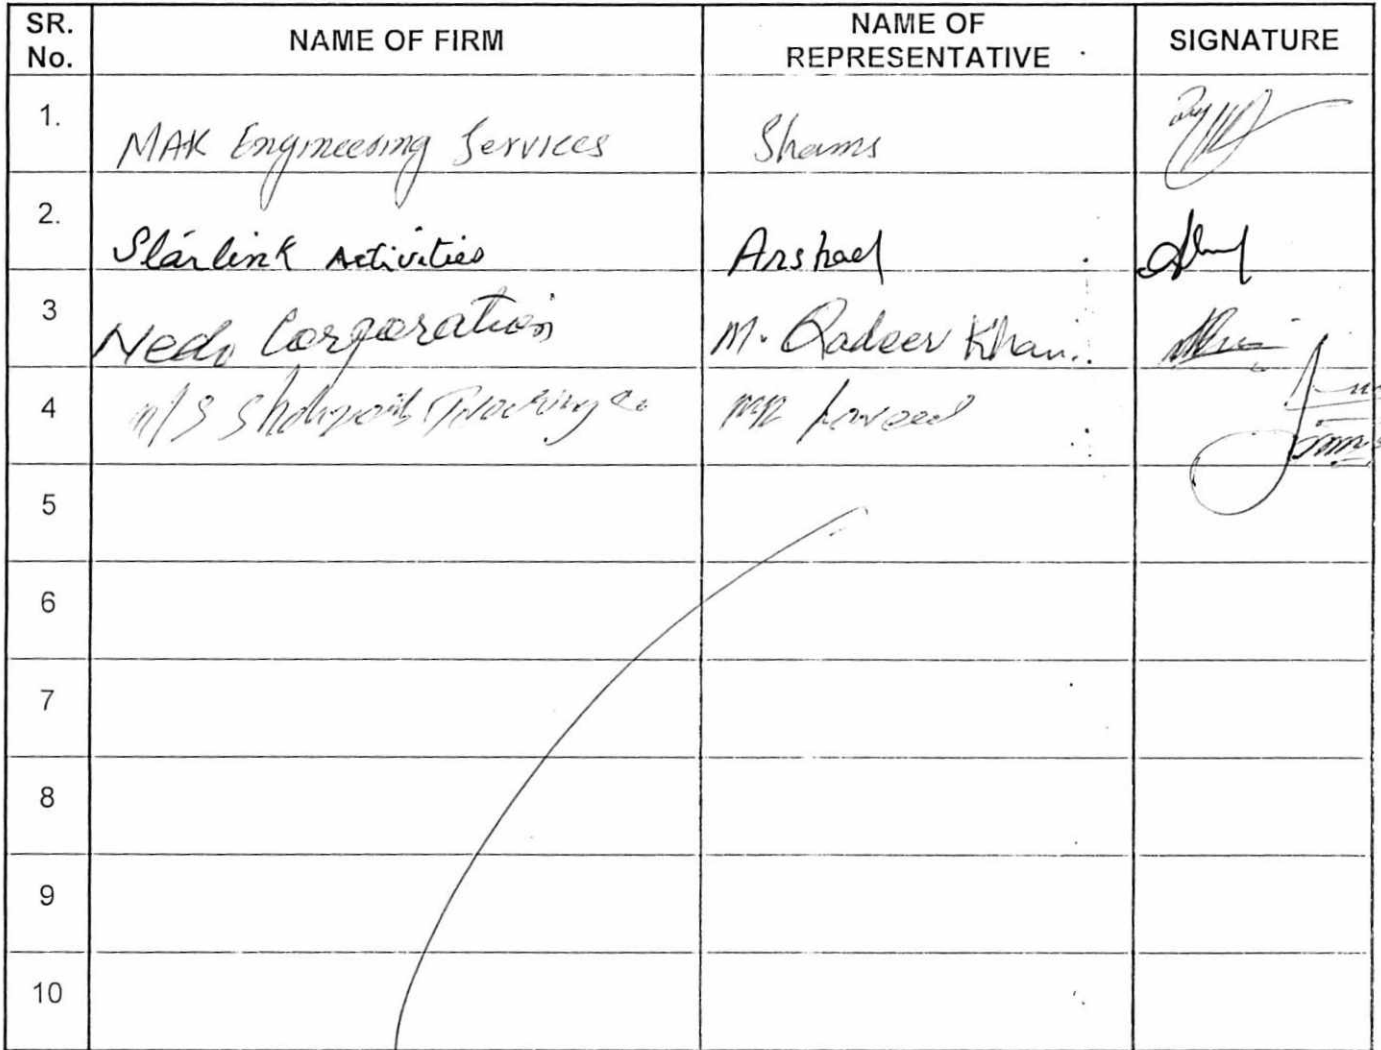 SR. No. NAME OF FIRM NAME OF REPRESENTATIVE SIGNATURE
1. MAK Engineering Services Shams
2. Starlink Activities Arshad
3 Corporation M. Qadeer Khan
4 M/S Co MR
5
6
7
8
9
10